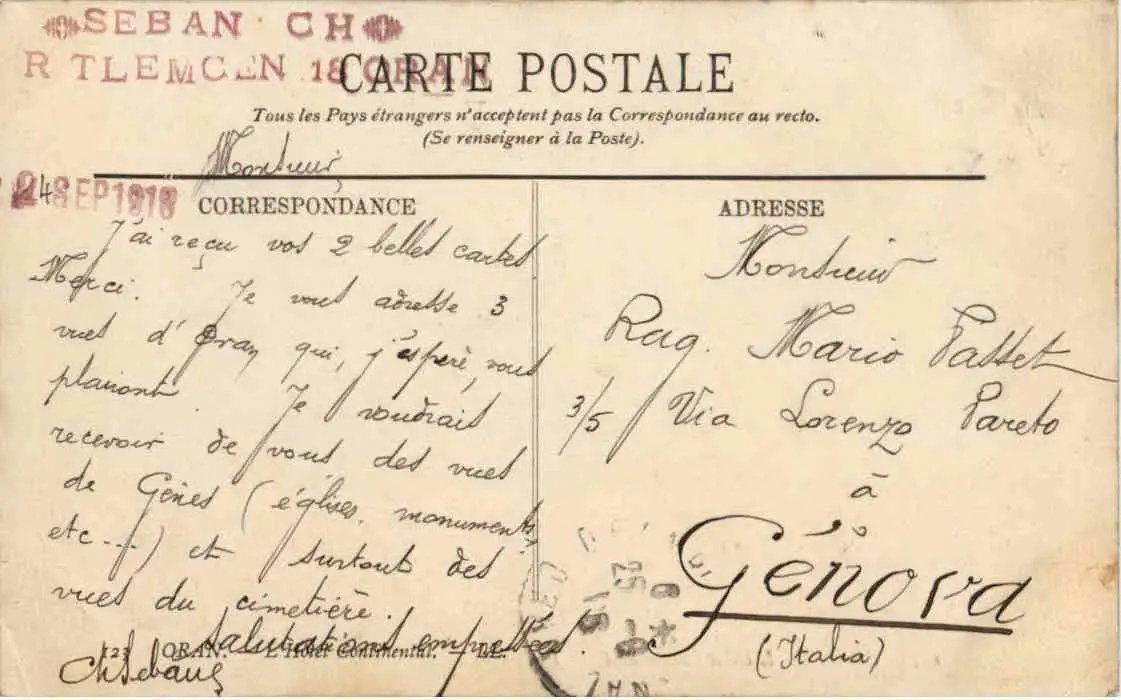 SEBAN CH
R TLEMCEN 18 ORAN
CARTE POSTALE
Tous les Pays étrangers n'acceptent pas la Correspondance au recto.
(Se renseigner à la Poste).
Monsieur
24 SEP 1918
CORRESPONDANCE
J'ai reçu vos 2 belles cartes
Merci. Je vous adresse 3
vues d'Oran qui, j'espère, vous
plairont. Je voudrais
recevoir de vous des vues
de Gênes (églises, monuments,
etc...) et surtout des
vues du cimetière.
Salutations empressées.
Ch Seban
123 ORAN. - L'Hôtel Continental. - LL.
ADRESSE
Monsieur
Rag. Mario Passet
3/5 Via Lorenzo Pareto
à
Génova
(Italia)